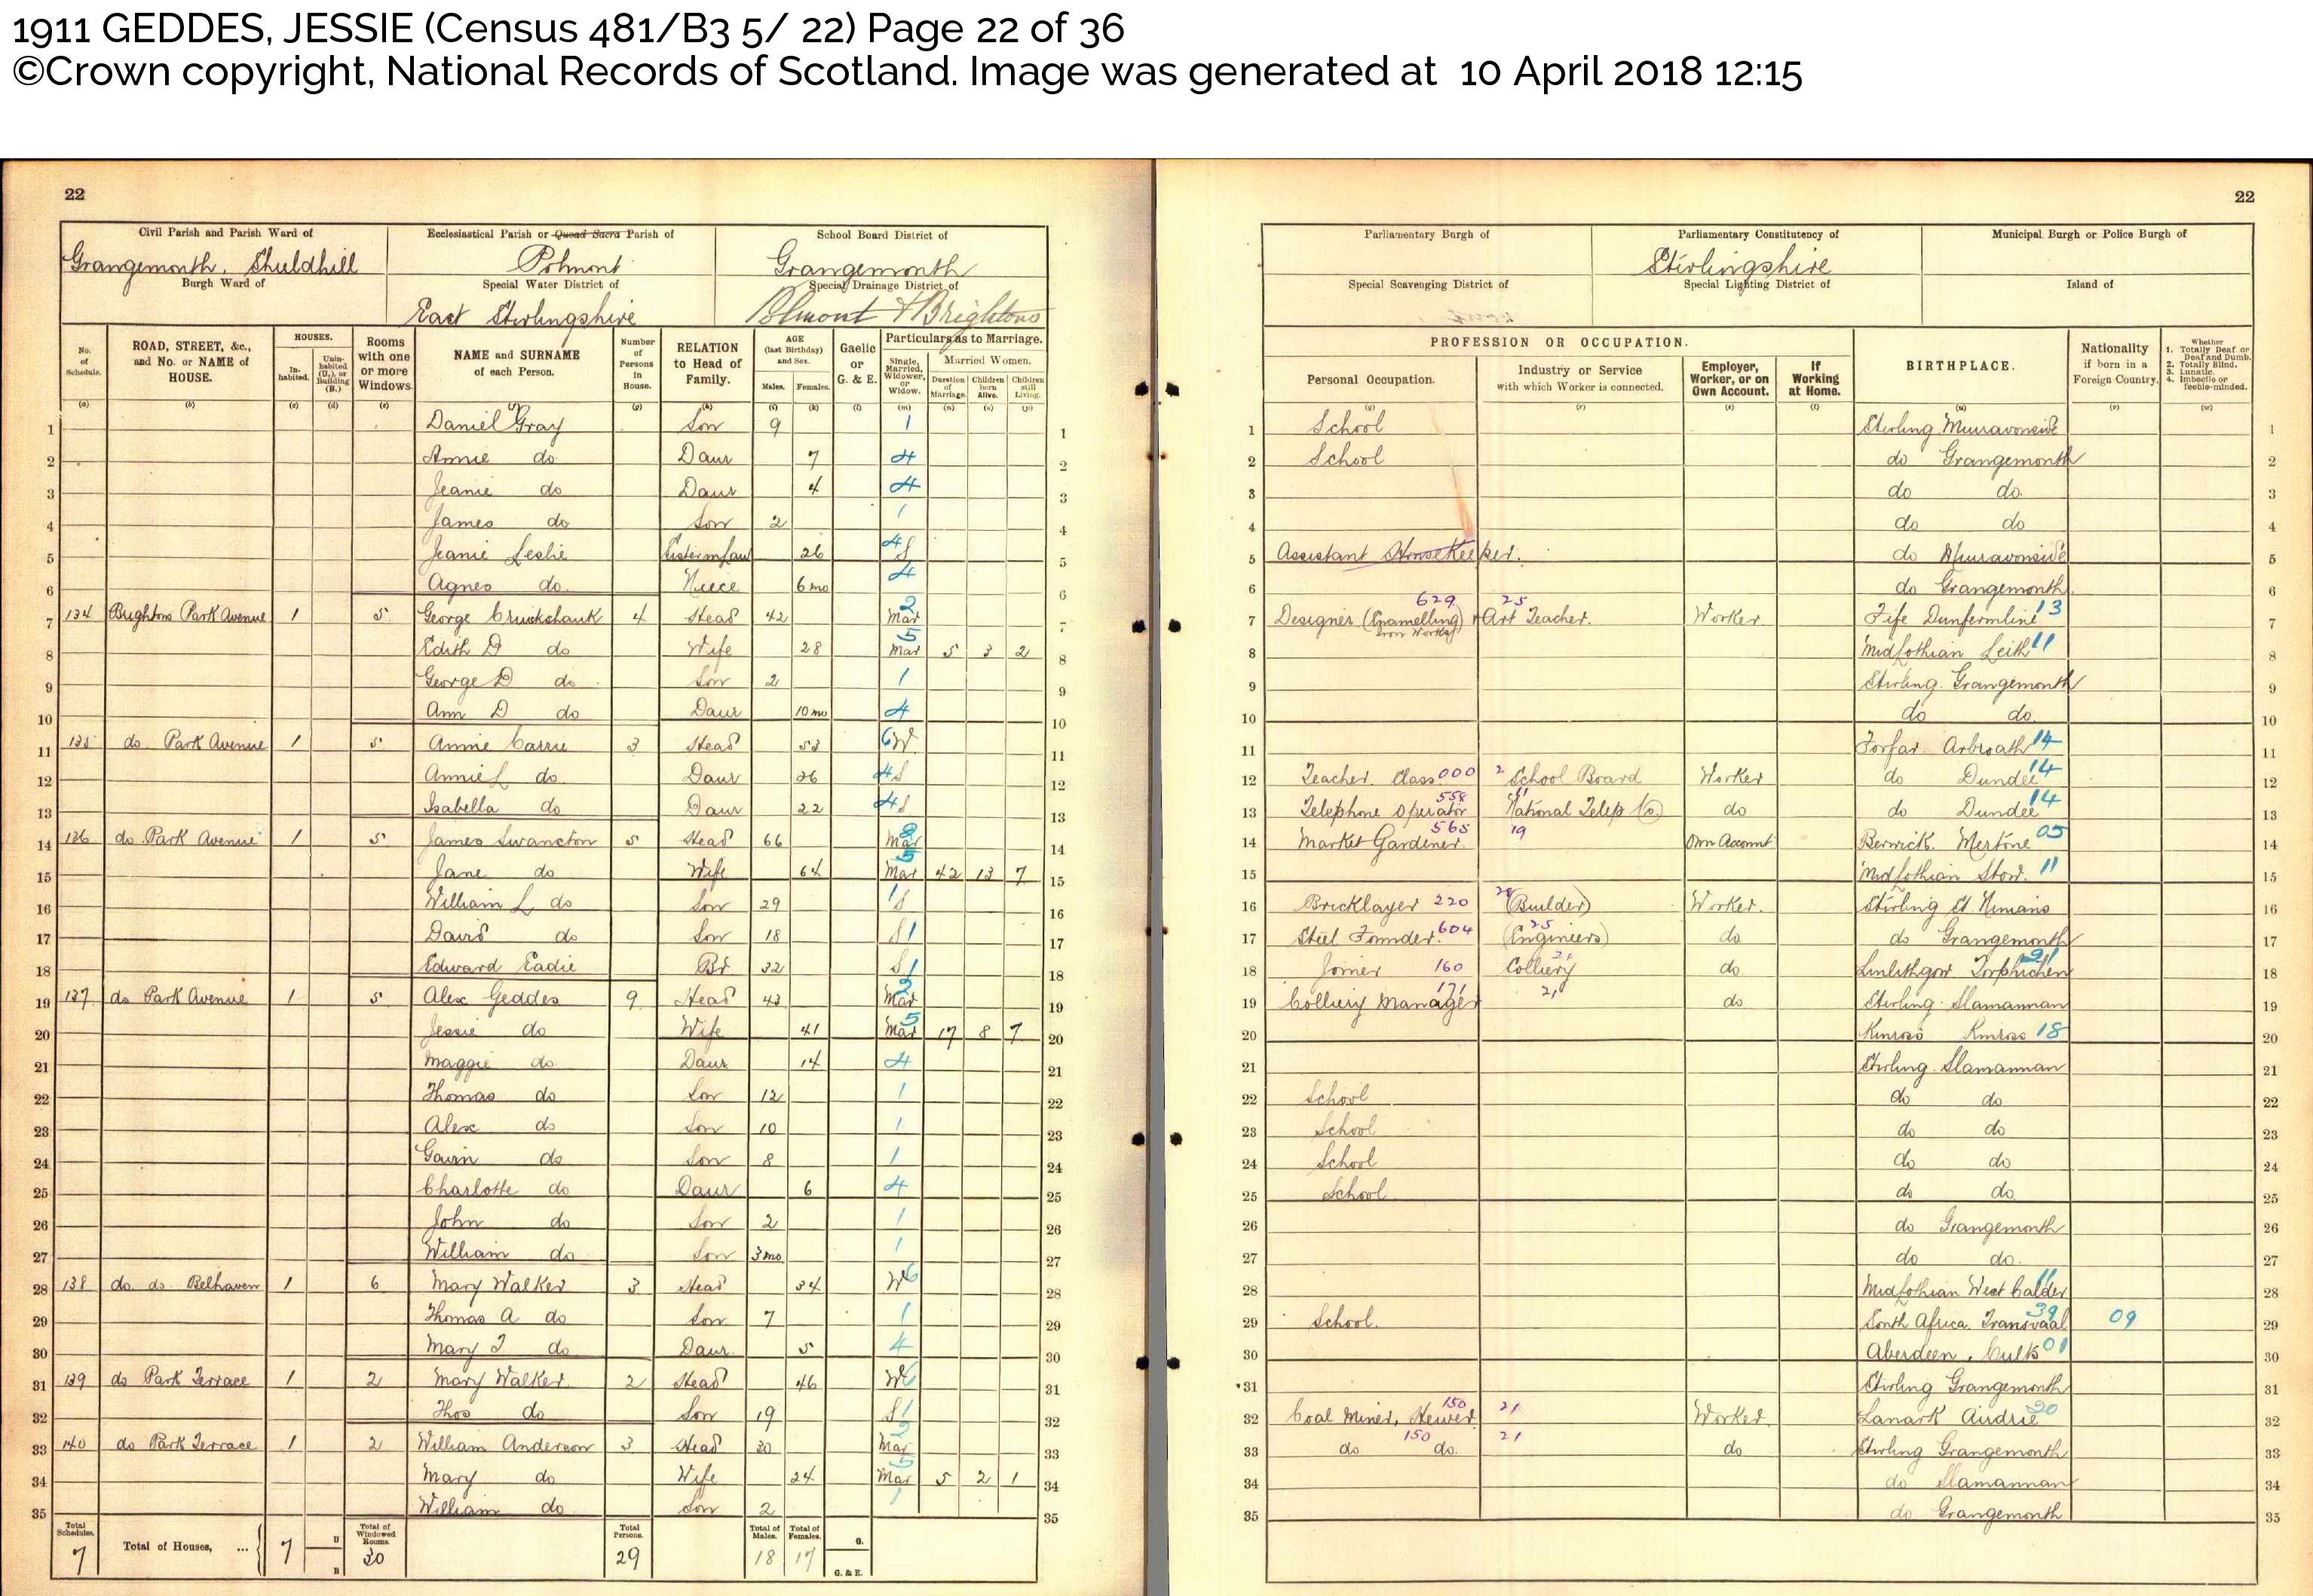 1911 GEDDES, JESSIE (Census 481/B3 5/ 22) Page 22 of 36
©Crown copyright, National Records of Scotland. Image was generated at 10 April 2018 12:15
22
22
Civil Parish and Parish Ward of Ecclesiastical Parish or Quoad Sacra Parish of School Board District of
Grangemouth. Shuldhill Polmont Grangemouth
Burgh Ward of Special Water District of Special Drainage District of
East Stirlingshire Polmont & Brightons
Parliamentary Burgh of Parliamentary Constitutency of Municipal Burgh or Police Burgh of
Stirlingshire
Special Scavenging District of Special Lighting District of Island of
No. of Schedule. ROAD, STREET, &c., and No. or NAME of HOUSE. HOUSES. Inhabited. Uninhabited (U.), or Building (B.) Rooms with one or more Windows. NAME and SURNAME of each Person. Number of Persons in House. RELATION to Head of Family. AGE (last Birthday) and Sex. Males. Females. Gaelic or G. & E. Particulars as to Marriage. Single, Married, Widower, or Widow. Married Women. Duration of Marriage. Children born Alive. Children still Living.
PROFESSION OR OCCUPATION. Personal Occupation. Industry or Service with which Worker is connected. Employer, Worker, or on Own Account. If Working at Home. BIRTHPLACE. Nationality if born in a Foreign Country. Whether 1. Totally Deaf or Deaf and Dumb. 2. Totally Blind. 3. Lunatic. 4. Imbecile or feeble-minded.
(a) (b) (c) (d) (e) (f) (g) (h) (i) (k) (l) (m) (n) (o) (p) (q) (r) (s) (t) (u) (v) (w)
1 Daniel Gray Son 9 1 1 1 School Stirling Muiravonside 1
2 Annie do Daur 7 4 2 2 School do Grangemouth 2
3 Jeanie do Daur 4 4 3 3 do do 3
4 James do Son 2 1 4 4 do do 4
5 Jeanie Leslie Sister in Law 26 4 S 5 5 Assistant Housekeeper. do Muiravonside 5
6 Agnes do Niece 6 mo 4 6 6 do Grangemouth 6
7 134 Brightons Park Avenue 1 5 George Cruickshank 4 Head 42 2 Mar 7 7 Designer (Enamelling Iron Works) 629 + Art Teacher. 25 Worker Fife Dunfermline 13 7
8 Edith D do Wife 28 5 Mar 5 3 2 8 8 Midlothian Leith 11 8
9 George D do Son 2 1 9 9 Stirling. Grangemouth 9
10 Ann D do Daur 10 mo 4 10 10 do do 10
11 135 do Park Avenue 1 5 Annie Carrie 3 Head 53 6 W 11 11 Forfar Arbroath 14 11
12 Annie L do Daur 26 4 S 12 12 Teacher. Class 000 2 School Board Worker do Dundee 14 12
13 Isabella do Daur 22 4 S 13 13 Telephone Operator 558 National Telep Co. do do Dundee 14 13
14 136 do Park Avenue 1 5 James Swanston 5 Head 66 2 Mar 14 14 Market Gardener. 565 19 Own Account Berwick. Mertone 05 14
15 Jane do Wife 64 5 Mar 42 13 7 15 15 Midlothian Stow. 11 15
16 William L do Son 29 1 S 16 16 Bricklayer 220 20 (Builder) Worker. Stirling St Ninians 16
17 David do Son 18 S 1 17 17 Steel Founder. 604 25 (Engineers) do do Grangemouth 17
18 Edward Eadie Br 32 S 1 18 18 Joiner 160 Colliery 21 do Linlithgow Torphichen 21 18
19 137 do Park Avenue 1 5 Alex Geddes 9 Head 43 2 Mar 19 19 Colliery Manager 171 21 do Stirling. Slamannan 19
20 Jessie do Wife 41 5 Mar 17 8 7 20 20 Kinross Kinross 18 20
21 Maggie do Daur 14 4 21 21 Stirling Slamannan 21
22 Thomas do Son 12 1 22 22 School do do 22
23 Alex do Son 10 1 23 23 School do do 23
24 Gavin do Son 8 1 24 24 School do do 24
25 Charlotte do Daur 6 4 25 25 School do do 25
26 John do Son 2 1 26 26 do Grangemouth 26
27 William do Son 3 mo 1 27 27 do do. 27
28 138 do do Belhaven 1 6 Mary Walker 3 Head 34 W 6 28 28 Midlothian West Calder 11 28
29 Thomas A do Son 7 1 29 29 School. South Africa. Transvaal 39 09 29
30 Mary J do Daur. 5 4 30 30 Aberdeen. Cults 01 30
31 139 do Park Terrace 1 2 Mary Walker 2 Head 46 W 6 31 31 Stirling Grangemouth 31
32 Thos do Son 19 S 1 32 32 Coal Miner, Hewer 150 21 Worker Lanark Airdrie 20 32
33 140 do Park Terrace 1 2 William Anderson 3 Head 30 2 Mar 33 33 do 150 do. 21 do Stirling Grangemouth 33
34 Mary do Wife 24 5 Mar 5 2 1 34 34 do Slamannan 34
35 William do Son 2 1 35 35 do Grangemouth 35
Total Schedules. 7 Total of Houses, ... 7 U B Total of Windowed Rooms. 30 Total Persons. 29 Total of Males. 18 Total of Females. 17 G. G. & E.